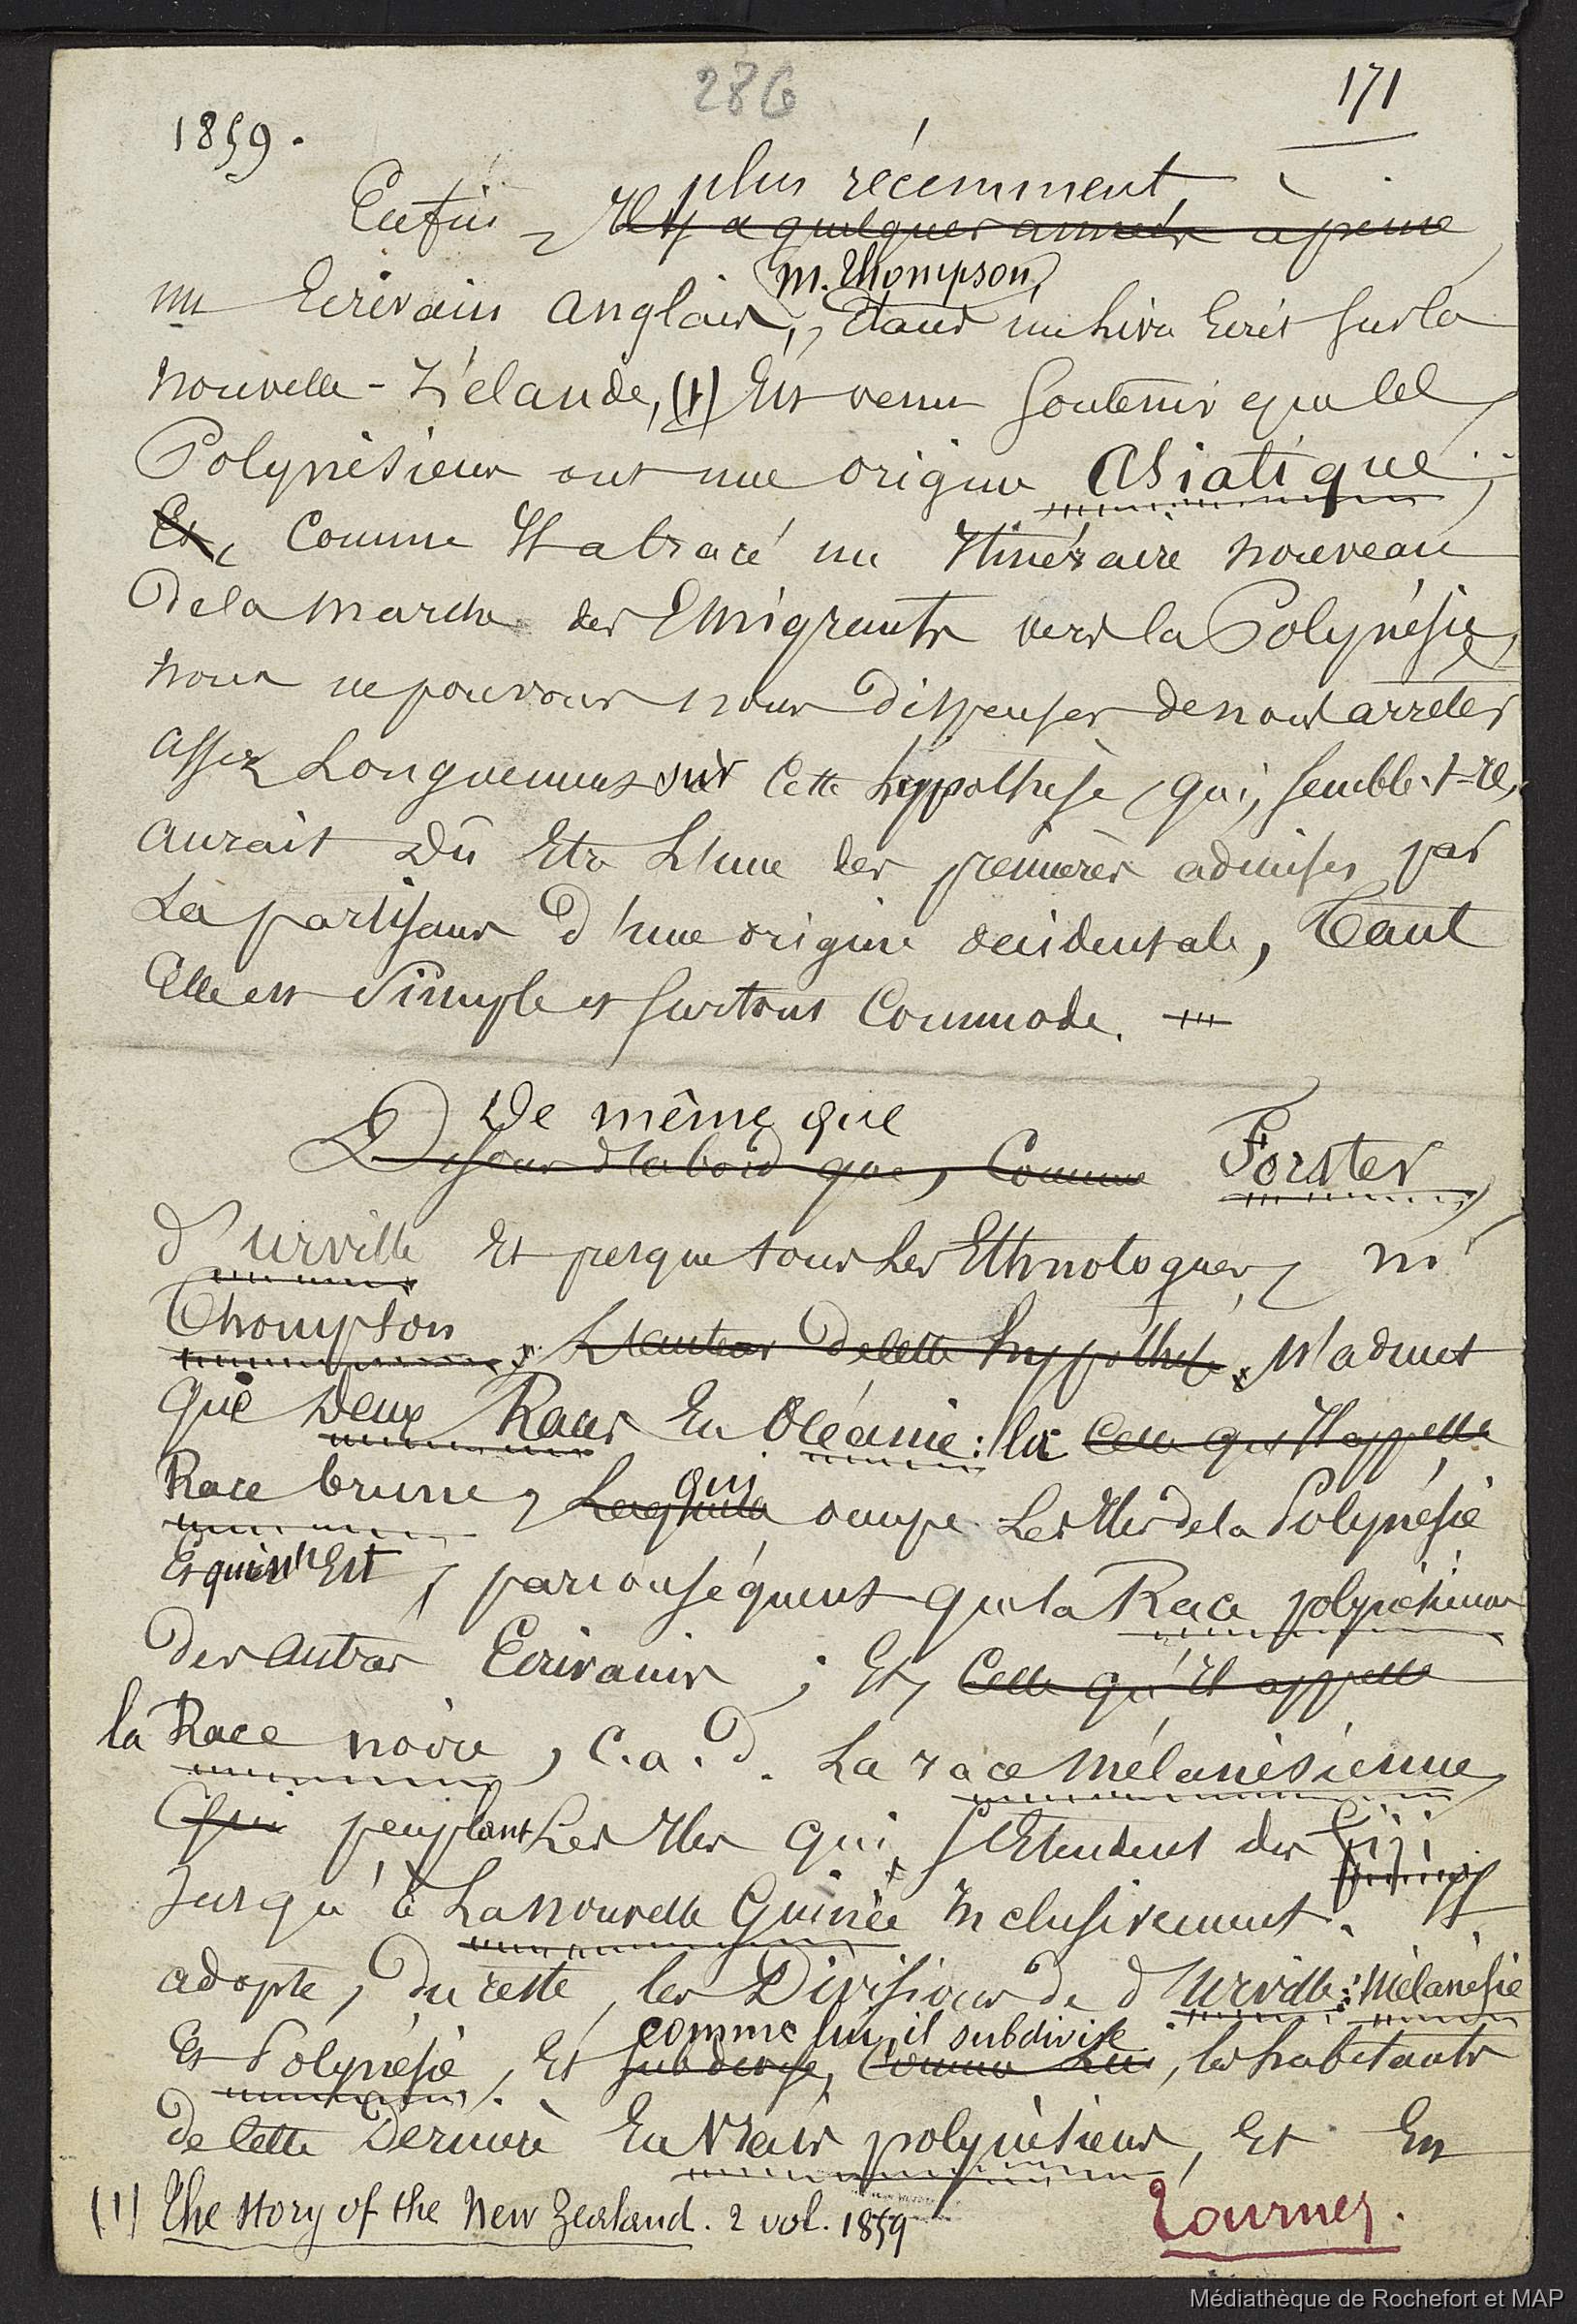 286
171
1859.
plus récemment,
Enfin, Il y a quelques années à peine
(M. Thompson)
un Ecrivain anglais, dans un livre Ecrit sur la
nouvelle-Zélande, (1) Est venu soutenir que les
Polynésiens ont une origine Asiatique;
Et, Comme Il a tracé un Itinéraire nouveau
De la marche des Emigrants vers la Polynésie,
nous ne pouvons nous Dispenser de nous arrêter
assez Longuement sur Cette hypothèse qui, semble-t-Il,
aurait Dû Etre L'une des premières admises par
Les partisans D'une origine occidentale, Tant
Elle est Simple et surtout Commode.
De même que
Disons d'abord que, Comme Forster
D'Urville Et presque tous Les Ethnologues,
Thompson, L'auteur De Cette hypothèse, N'admet
que Deux Races En Océanie: la Celle qu'Il appelle
Race brune, Laquelle qui occupe Les Iles de la Polynésie
Et qui n'Est, par conséquent que la Race polynésienne
Des autres Ecrivains; Et, Celle qu'Il appelle
la Race noire, C.a.D. La race Mélanésienne,
Qui peuplant Les Iles qui s'Etendent des Fiji
Jusqu'à La nouvelle Guinée Inclusivement. Il
adopte, Du reste, les Divisions de D'Urville: Mélanésie
comme lui, il subdivise
Et Polynésie, Et subdivise, Comme Lui, les habitants
De Cette Dernière En Vrais polynésiens, Et En
(1) The story of the New Zealand. 2 vol. 1859
Tournez.
Médiathèque de Rochefort et MAP